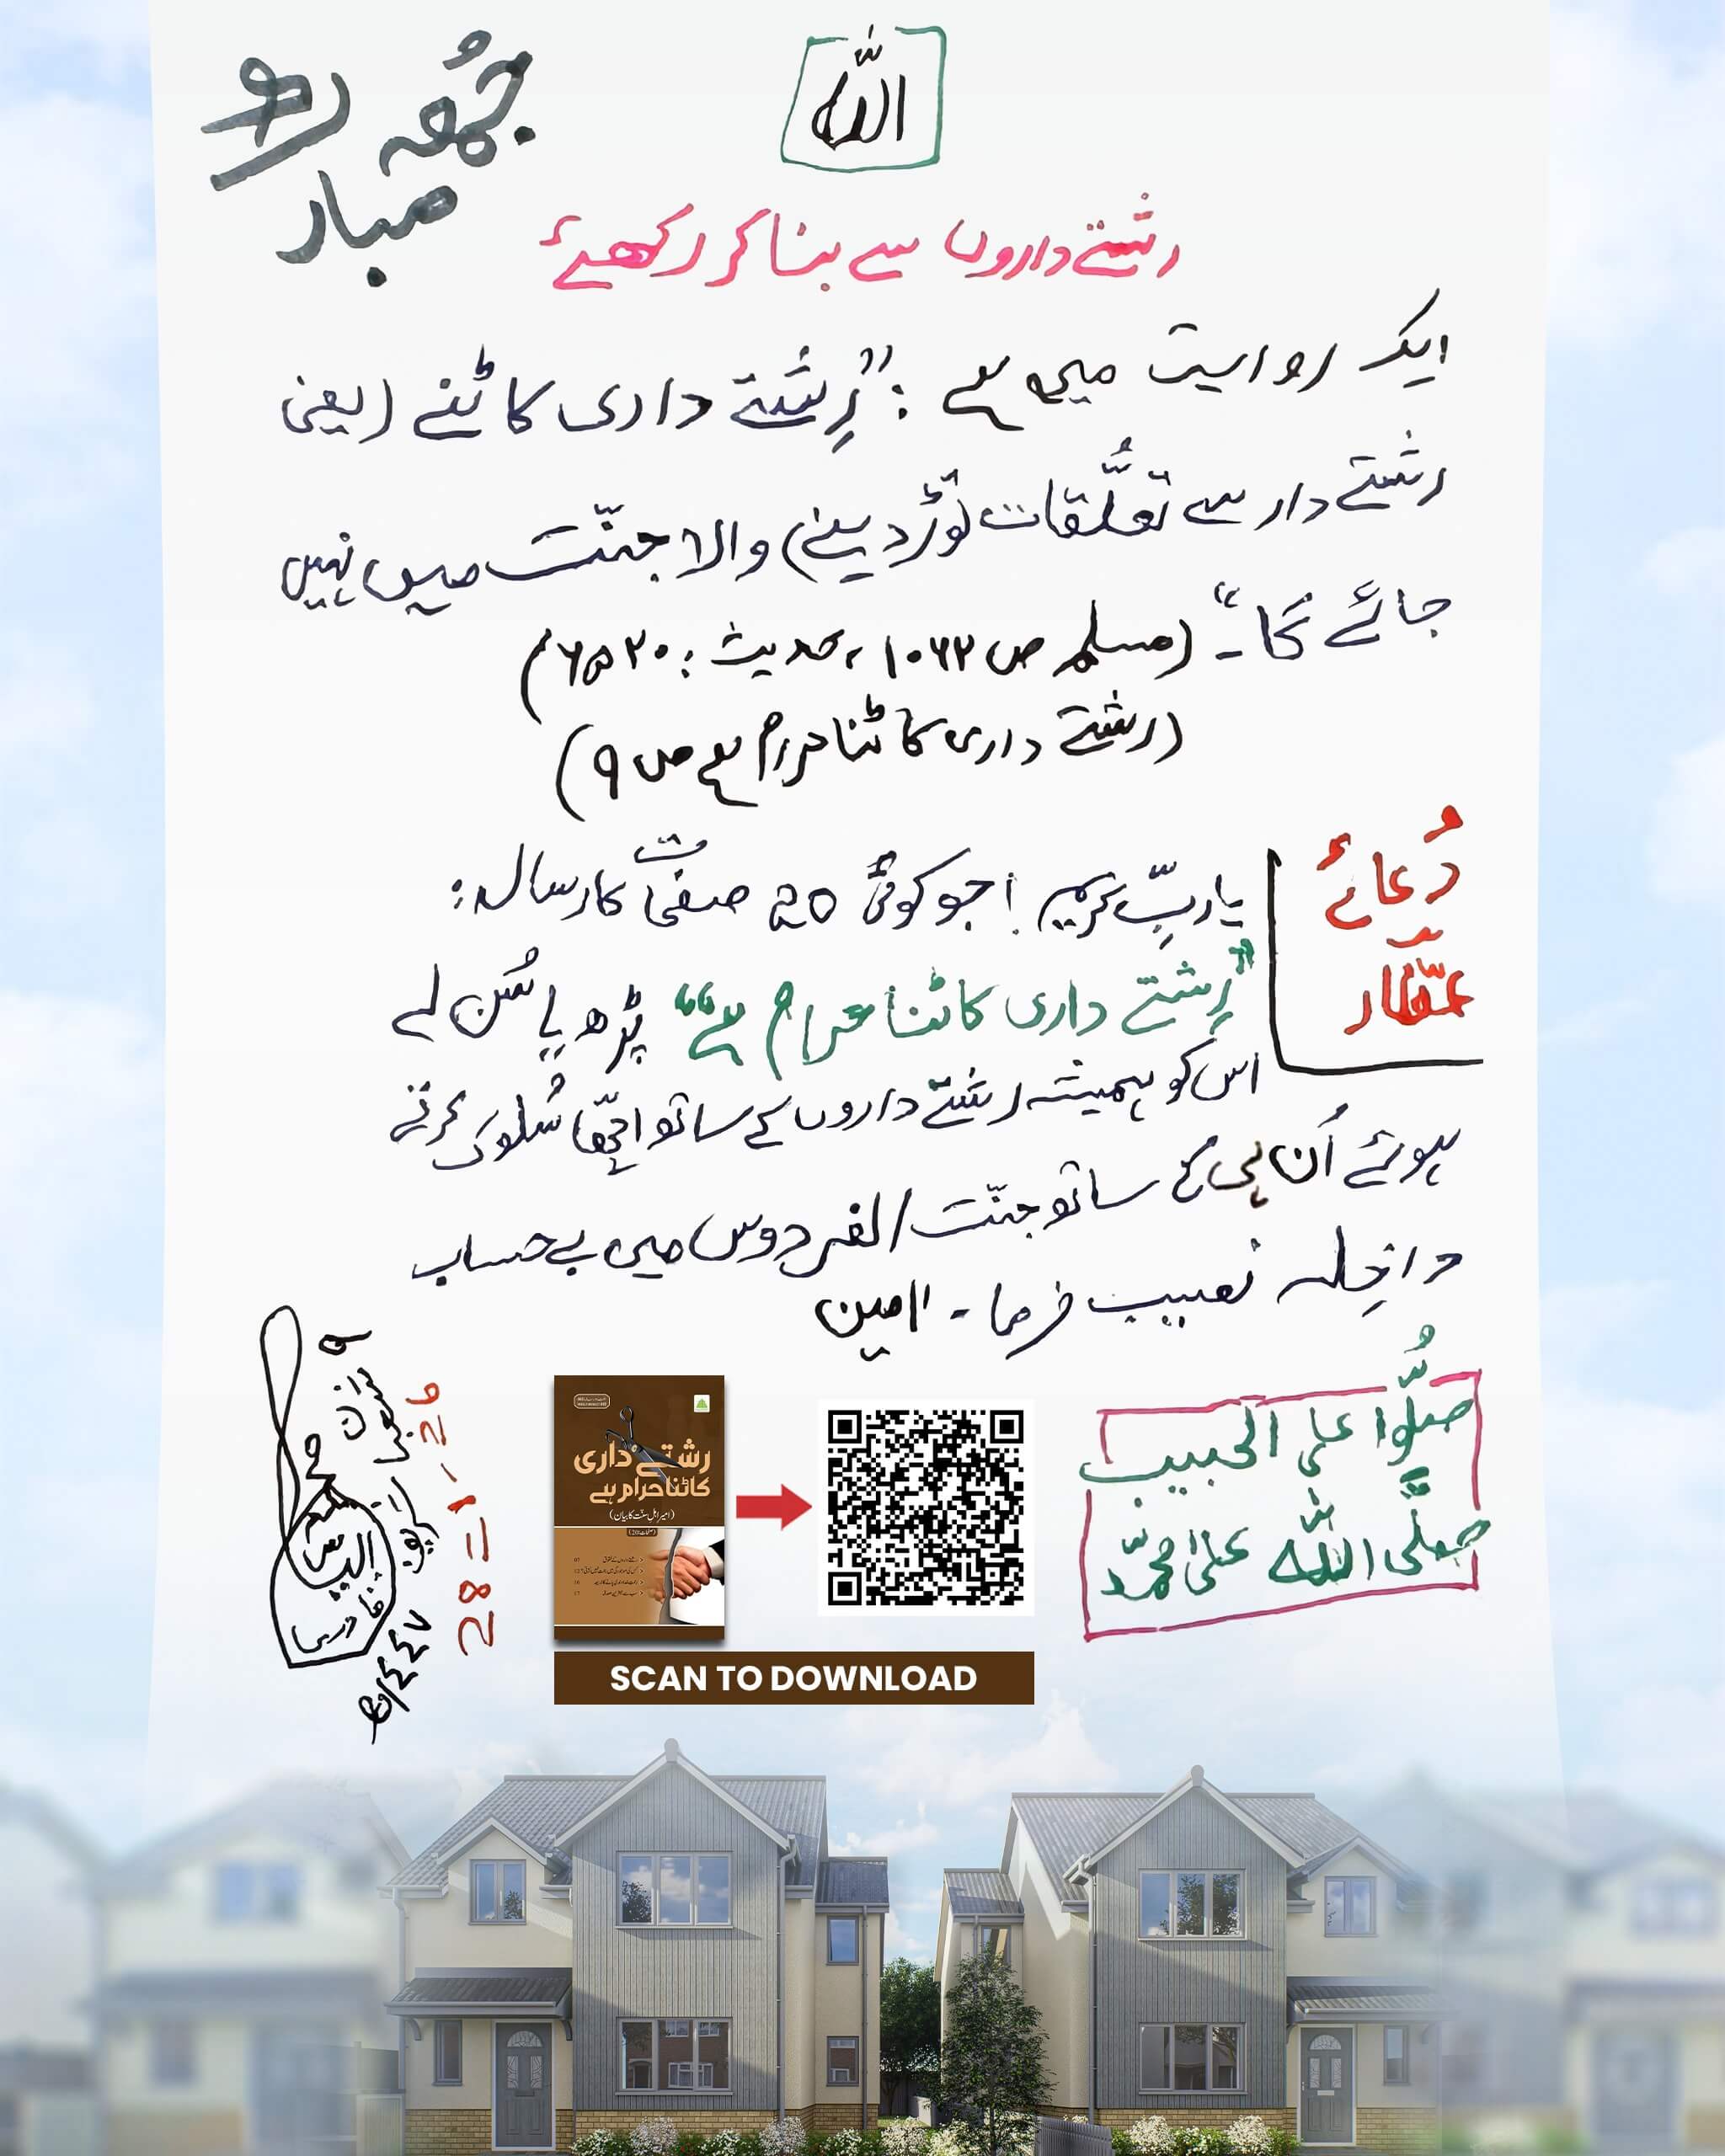 اللہ
جُمُعہ
مبارک
رشتے داروں سے بنا کر رکھئے
ایک روایت میں ہے: ”رِشتے داری کاٹنے (یعنی
رشتے دار سے تعلُّقات توڑ دینے) والا جنّت میں نہیں
جائے گا۔“ (مسلم ص ۱۰۶۲، حدیث: ۶۵۲۰)
(رشتے داری کاٹنا حرام ہے ص ۹)
دُعائے
عطّار
یا ربِّ کریم! جو کوئی 20 صفحات کا رسالہ:
”رِشتے داری کاٹنا حرام ہے“ پڑھ یا سُن لے
اس کو ہمیشہ رشتے داروں کے ساتھ اچّھا سُلوک کرتے
ہوئے اُن ہی کے ساتھ جنّت الفردوس میں بے حساب
داخِلہ نصیب فرما۔ اٰمین
صلُّوا علی الحبیب
صلَّی اللہ علیٰ محمّد
محمد الیاس
قادری
۹
شعبان
۱۴۴۷ھ
28-1-26
رشتے داری
کاٹنا حرام ہے
(امیرِ اہلِ سنّت کا بیان)
SCAN TO DOWNLOAD